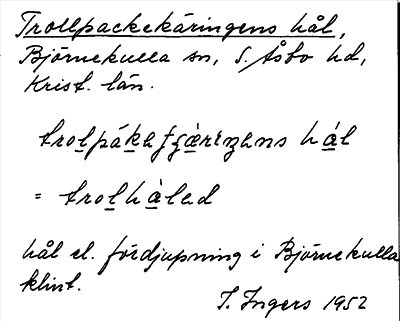 Trollpackekäringens hål,
Björnekulla sn, S. Åsbo hd,
Krist. län.
trolpákeʃɕæ̀riŋens hål
= trolhåled
hål el. fördjupning i Björnekulla
klint.
I. Ingers 1952